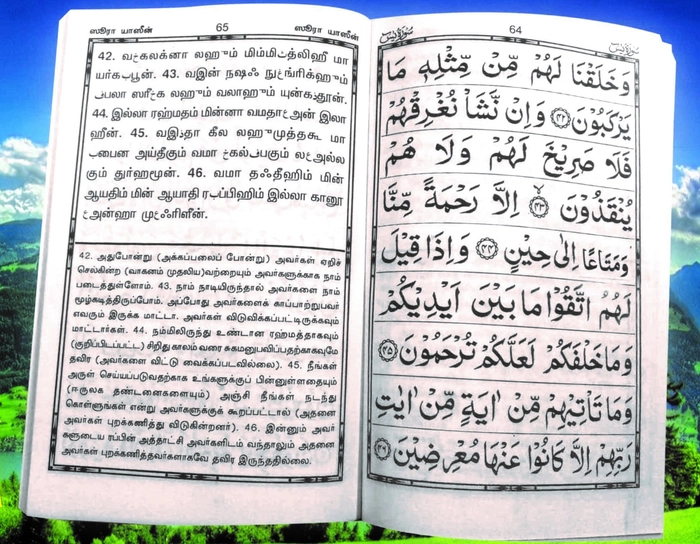 ஸூரா யாஸீன் 65 ஸூரா யாஸீன்
42. வஃகலக்னா லஹும் மிம்மித்லிஹீ மா
43. வஇன் நஷஃ நுக்ரிக்ஹும்
44. இல்லா ரஹ்மதம் மின்னா வமதாஅன் இலா
ஹீன். 45. வஇதா கீல லஹுமுத்தகூ மா
பைன அய்தீகும் வமா ஃகல்ஃபகும் லஅல்ல
கும் துர்ஹமூன். 46. வமா தஃதீஹிம் மின்
ஆயதிம் மின் ஆயாதி ரப்பிஹிம் இல்லா கானூ
அன்ஹா முஃரிளீன்.
42. அதுபோன்று (அக்கப்பலைப் போன்று) அவர்கள் ஏறிச்
செல்கின்ற (வாகனம் முதலிய)வற்றையும் அவர்களுக்காக நாம்
படைத்துள்ளோம். 43. நாம் நாடியிருந்தால் அவர்களை நாம்
மூழ்கடித்திருப்போம். அப்போது அவர்களைக் காப்பாற்றுபவர்
எவரும் இருக்க மாட்டா. அவர்கள் விடுவிக்கப்பட்டிருக்கவும்
மாட்டார்கள். 44. நம்மிலிருந்து உண்டான ரஹ்மத்தாகவும்
(குறிப்பிடப்பட்ட) சிறிது காலம் வரை சுகமனுபவிப்பதற்காகவுமே
தவிர (அவர்களை விட்டு வைக்கப்படவில்லை). 45. நீங்கள்
அருள் செய்யப்படுவதற்காக உங்களுக்குப் பின்னுள்ளதையும்
(ஈருலக தண்டனைகளையும்) அஞ்சி நீங்கள் நடந்து
கொள்ளுங்கள் என்று அவர்களுக்குக் கூறப்பட்டால் (அதனை
அவர்கள் புறக்கணித்து விடுகின்றனர்). 46. இன்னும் அவர்
களுடைய ரப்பின் அத்தாட்சி அவர்களிடம் வந்தாலும் அதனை
அவர்கள் புறக்கணித்தவர்களாகவே தவிர இருந்ததில்லை.
سُوْرَةُ يٰسٓ 64 سُوْرَةُ يٰسٓ
وَخَلَقْنَا لَهُمْ مِّنْ مِّثْلِهٖ مَا
يَرْكَبُوْنَ ﴿۴۲﴾ وَاِنْ نَّشَأْ نُغْرِقْهُمْ
فَلَا صَرِيْخَ لَهُمْ وَلَا هُمْ
يُنْقَذُوْنَ ﴿۴۳﴾ اِلَّا رَحْمَةً مِّنَّا
وَمَتَاعًا اِلٰى حِيْنٍ ﴿۴۴﴾ وَاِذَا قِيْلَ
لَهُمُ اتَّقُوْا مَا بَيْنَ اَيْدِيْكُمْ
وَمَا خَلْفَكُمْ لَعَلَّكُمْ تُرْحَمُوْنَ ﴿۴۵﴾
وَمَا تَأْتِيْهِمْ مِّنْ اٰيَةٍ مِّنْ اٰيٰتِ
رَبِّهِمْ اِلَّا كَانُوْا عَنْهَا مُعْرِضِيْنَ ﴿۴۶﴾